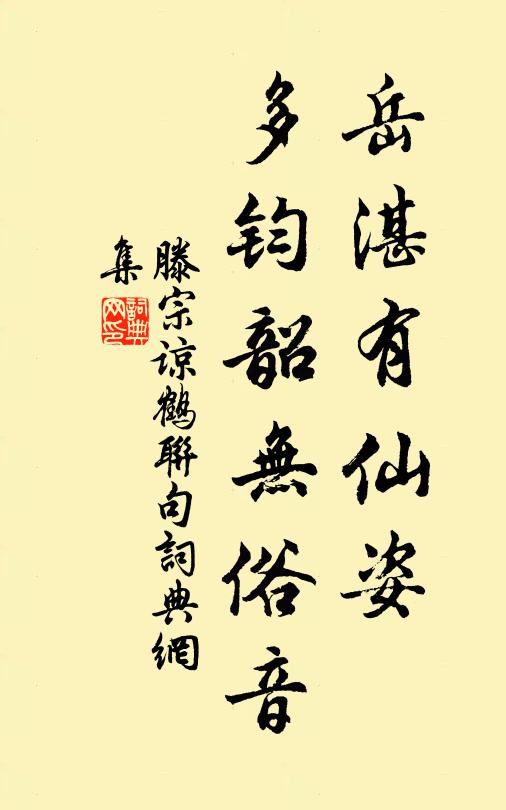 岳湛有仙姿
多鈞韶無俗音
滕宗諒鶴聯句詞典網
集
詞典網印